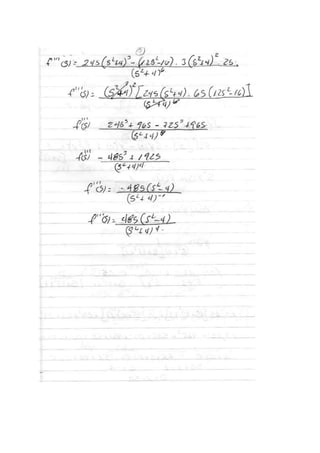 f'''(s) = 24s(s²+4)³ - (12s²-16) · 3(s²+4)² · 2s.
(s²+4)⁶
f'''(s) = (s²+4)² [24s(s²+4) - 6s(12s²-16)]
(s²+4)⁶
f'''(s) 24s³ + 96s - 72s³ + 96s
(s²+4)⁴
f'''(s) - 48s³ + 192s
(s²+4)⁴
f'''(s) = - 48s(s²-4)
(s²+4)
f'''(s) = 48s(s²-4)
(s²+4)⁴.